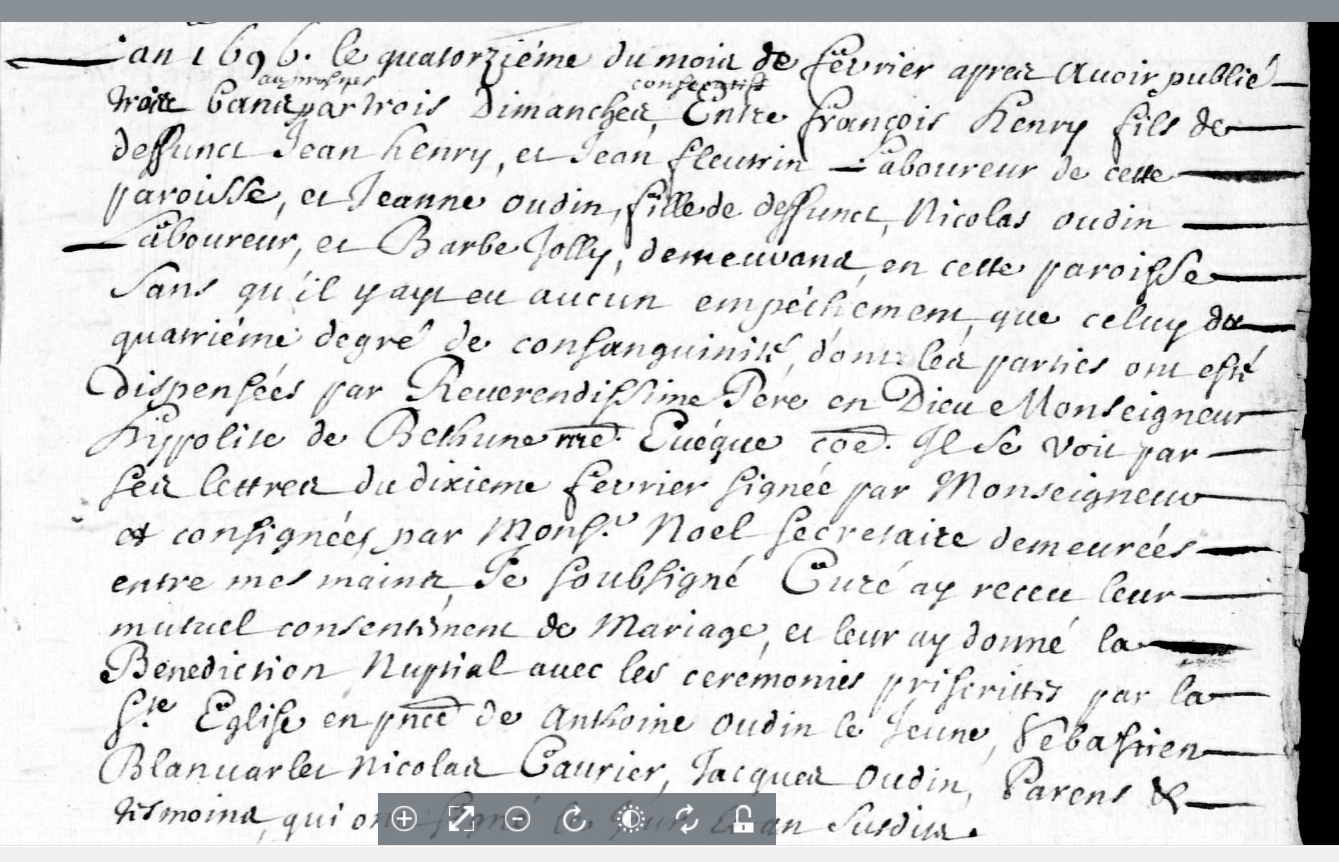 Lan 1696. le quatorziéme du mois de fevrier apres avoir publié
au prosnes consecutifs
trois bans par trois Dimanches, Entre françois henry fils de
deffunct Jean henry, et Jean fleurin Laboureur de cette
paroisse, et Jeanne oudin, fille de deffunct, Nicolas oudin
Laboureur, et Barbe Jolly, demeurans en cette paroisse
Sans qu'il y ayt eu aucun empéchement, que celuy du
quatriéme degré de consanguinité, dont les parties ont esté
dispensées par Reuerendissime Pere en Dieu Monseigneur
hippolite de Bethune nre Euéque coe. Il se voit par
ses lettres du dixieme fevrier signée par Monseigneur
et consignées par Monsr. Noel secretaire demeurées
entre mes mains, Je soubsigné Curé ay receu leur
mutuel consentiment de Mariage, et leur ay donné la
Benediction Nuptial avec les ceremonies priscrittes par la
Ste Eglise en pnce de Anthoine oudin le Jeune, Sebastien
Blanuarlet Nicolas Caurier, Jacques oudin, Parens &
tesmoins, qui ont signé le Jour et an susdits.